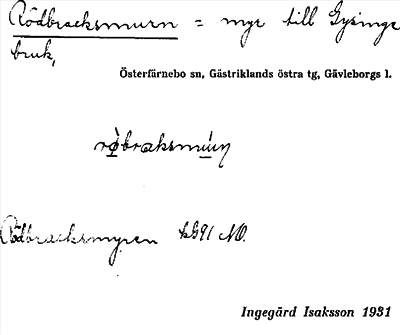 Rödbracksmurn = myr till Gysinge
bruk,
Österfärnebo sn, Gästriklands östra tg, Gävleborgs l.
Rödbracksmyren bG91 NO.
Ingegärd Isaksson 1931